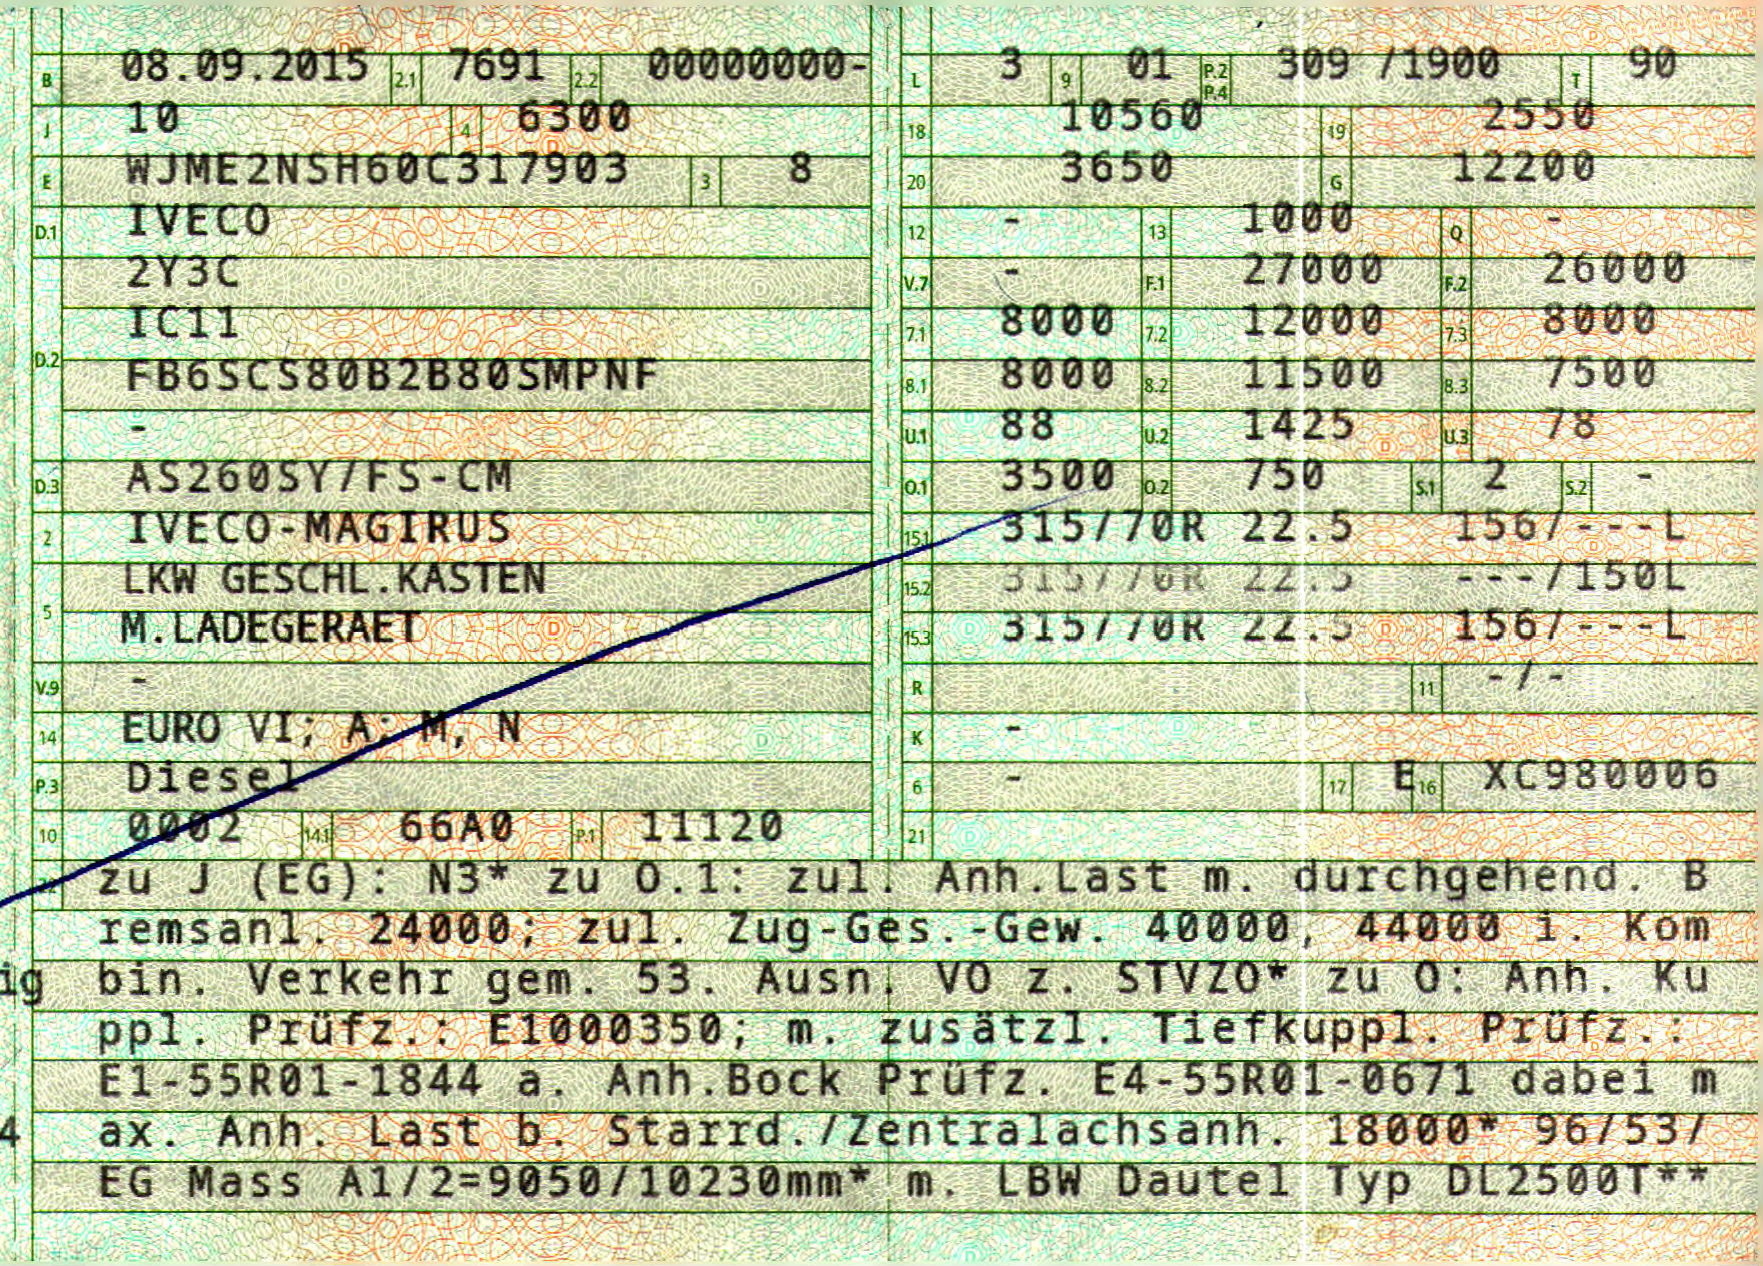 B 08.09.2015 2.1 7691 2.2 00000000-
J 10 4 6300
E WJME2NSH60C317903 3 8
D.1 IVECO
2Y3C
D.2 IC11
FB6SCS80B2B80SMPNF
-
D.3 AS260SY/FS-CM
2 IVECO-MAGIRUS
5 LKW GESCHL.KASTEN
M.LADEGERAET
V.9 -
14 EURO VI; A; M, N
P.3 Diesel
10 0002 14.1 66A0 P.1 11120
L 3 9 01 P.2 P.4 309 /1900 T 90
18 10560 19 2550
20 3650 G 12200
12 - 13 1000 Q -
V.7 - F.1 27000 F.2 26000
7.1 8000 7.2 12000 7.3 8000
8.1 8000 8.2 11500 8.3 7500
U.1 88 U.2 1425 U.3 78
O.1 3500 O.2 750 S.1 2 S.2 -
15.1 315/70R 22.5 156/---L
15.2 315/70R 22.5 ---/150L
15.3 315/70R 22.5 156/---L
R 11 -/-
K -
6 - 17 E 16 XC980006
21
22 zu J (EG): N3* zu O.1: zul. Anh.Last m. durchgehend. B
remsanl. 24000; zul. Zug-Ges.-Gew. 40000, 44000 i. Kom
ig bin. Verkehr gem. 53. Ausn. VO z. STVZO* zu O: Anh. Ku
ppl. Prüfz.: E1000350; m. zusätzl. Tiefkuppl. Prüfz.:
E1-55R01-1844 a. Anh.Bock Prüfz. E4-55R01-0671 dabei m
4 ax. Anh. Last b. Starrd./Zentralachsanh. 18000* 96/53/
EG Mass A1/2=9050/10230mm* m. LBW Dautel Typ DL2500T**